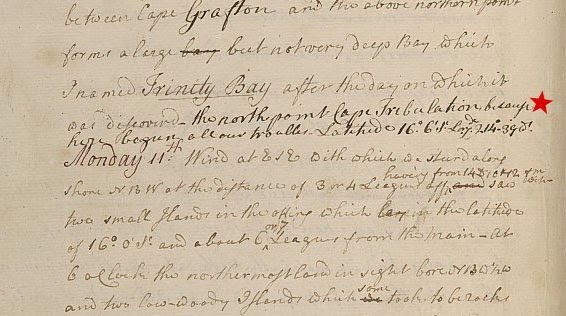 between Cape Grafton and the above northern point
forms a large bay but not very deep Bay which
I named Trinity Bay after the day on which it
was discover'd the north point Cape Tribulation because
here begun all our troubles. Latitude 16°..6' S° Longe 214..39 Wt
Monday 11th Wind at ESE with which we stear'd along
shore NBW at the distance of 3 or 4 Leagues off having from 14 to 10 & 12 fm saw
two small Islands in the offing which lay in the latitude
of 16°..0' S° and about 6 or 7 Leagues from the main - At
6 oClock the northermost land in sight bore
and two low woody Islands which some took to be rocks